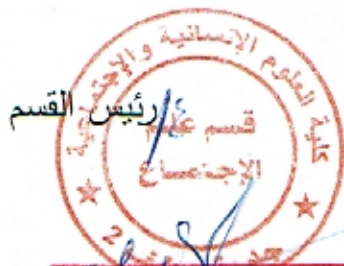 رئيس القسم
كلية العلوم الإنسانية والإجتماعية
قسم علم
الإجتماع
2